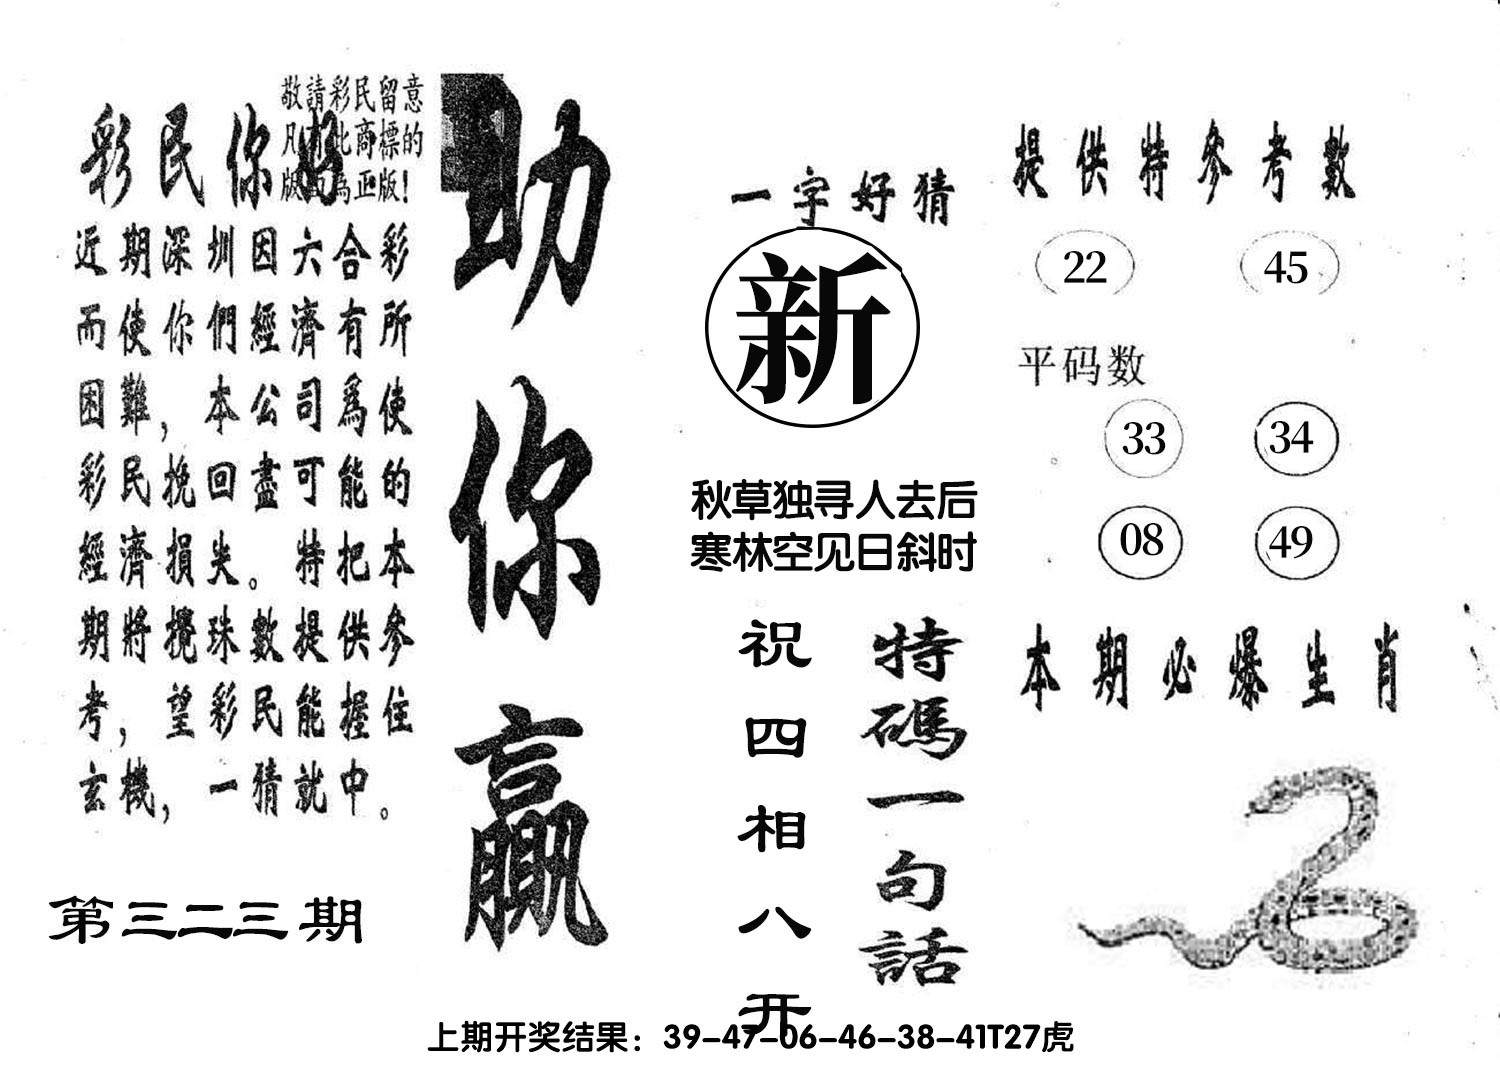 敬請彩民留意
凡有此商標的
版面為正版!
彩民你好
近期深圳因六合彩
而使你們經濟有所
困難，本公司爲使
彩民挽回盡可能的
經濟損失。特把本
期將攪珠數提供參
考，望彩民能握住
玄機，一猜就中。
第三二三期
助你贏
一字好猜
新
秋草独寻人去后
寒林空见日斜时
特碼一句話
祝四相八开
提供特參考數
22 45
平码数
33 34
08 49
本期必爆生肖
上期开奖结果：39-47-06-46-38-41T27虎